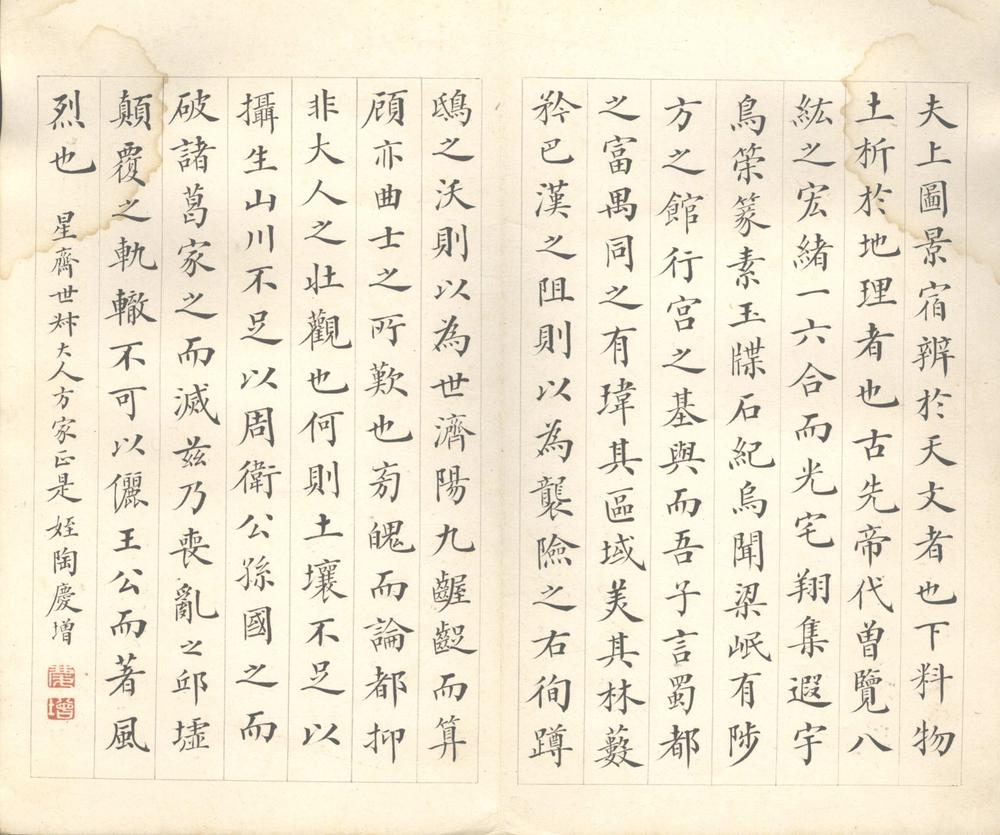 夫上圖景宿辨於天文者也下料物
土析於地理者也古先帝代曽覽八
紘之宏緒一六合而光宅翔集遐宇
鳥筞篆素玉牒石紀烏聞梁岷有陟
方之館行宮之基與而吾子言蜀都
之富禺同之有瑋其區域美其林藪
矜巴漢之阻則以為襲險之右徇蹲
鴟之沃則以為世濟陽九齷齪而算
顧亦曲士之所歎也旁魄而論都抑
非大人之壯觀也何則土壤不足以
攝生山川不足以周衛公孫國之而
破諸葛家之而滅茲乃喪亂之邱墟
顛覆之軌轍不可以儷王公而著風
烈也 星齋世叔大人方家正是 姪陶慶增
慶增